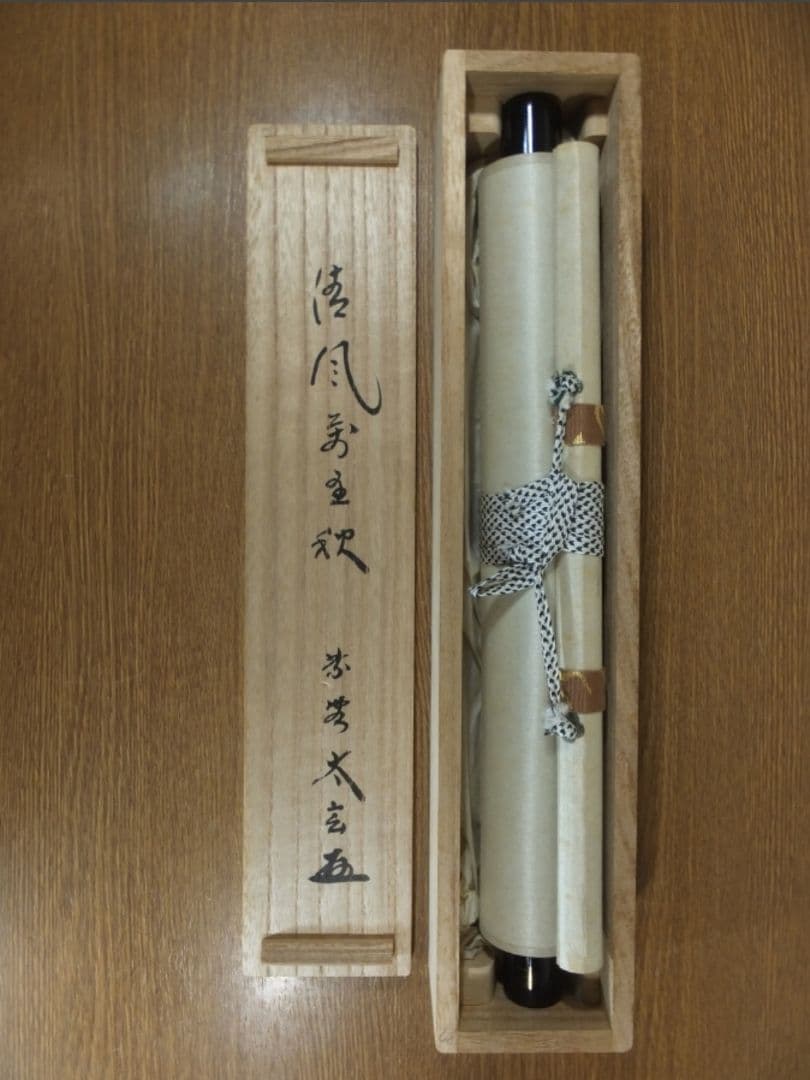 清風萬里秋
紫野太玄